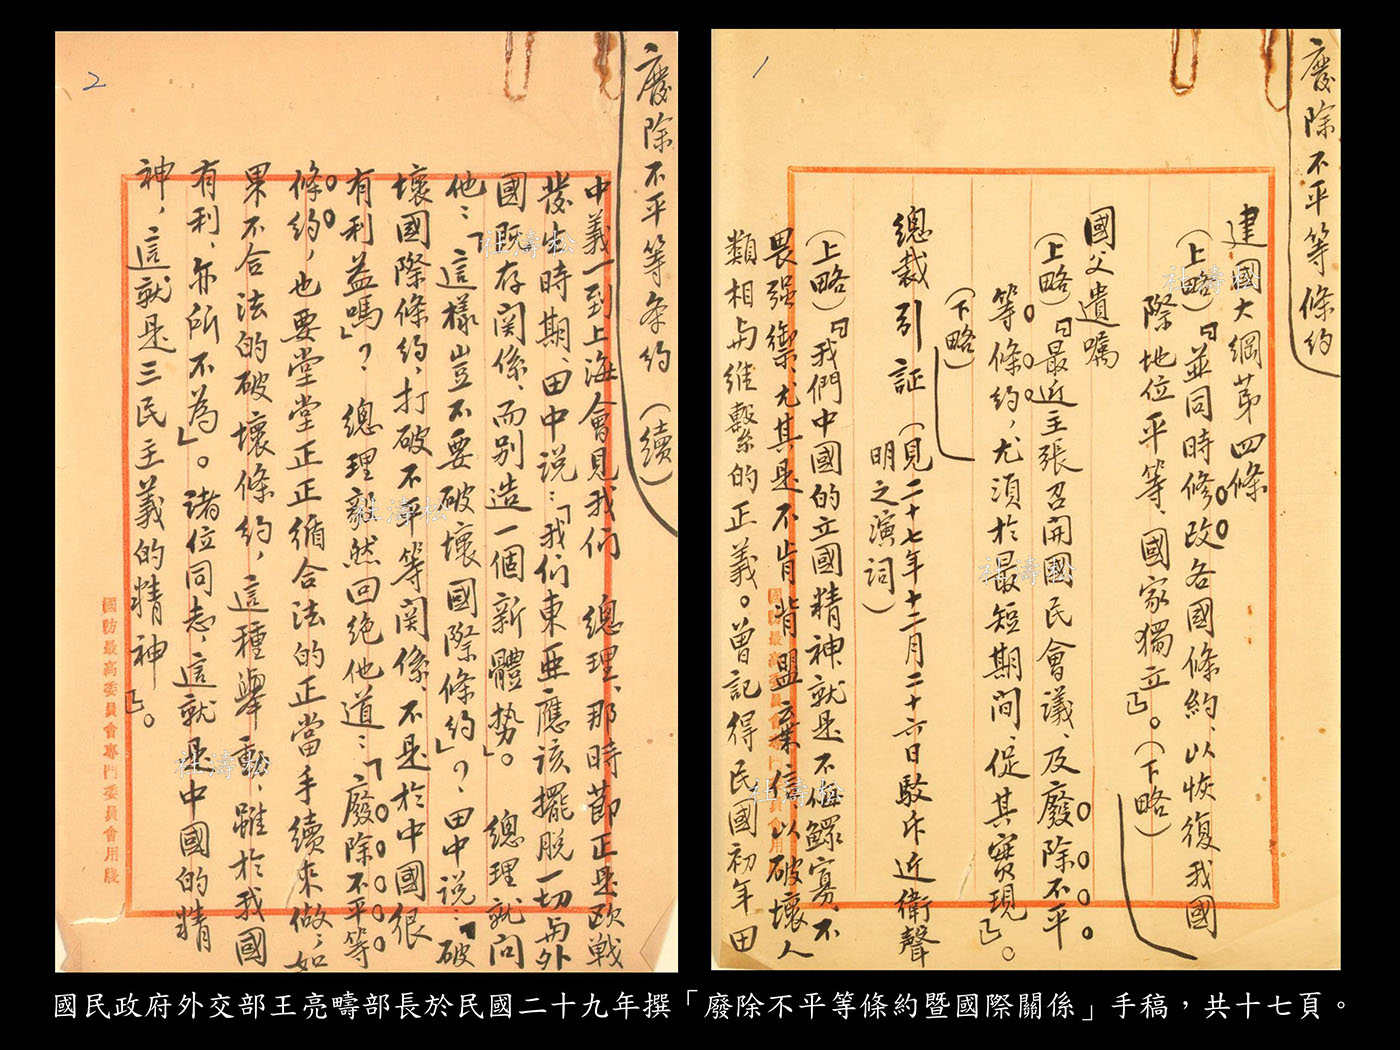 廢除不平等條約
1
建國大綱苐四條
（上略）「並同時修改各國條約、以恢復我國
際地位平等、國家獨立」。（下略）
國父遺囑
（上略）「最近主張召開國民會議、及廢除不平
等條約，尤須於最短期間、促其實現」。
（下略）
總裁引証（見二十七年十二月二十六日駁斥近衛聲
明之演詞）
（上略）「我們中國的立國精神、就是不侮鰥寡、不
畏强禦、尤其是不肯背盟棄信、以破壞人
類相与維繫的正義。曾記得民國初年田
國防最高委員會專門委員會用箋
廢除不平等条約（續）
2
中義一到上海會見我们 總理、那時節正是欧戦
發生時期、田中説：「我们東亜應该擺脱一切与外
國既存関係、而别造一個新體势」。 總理就问
他：「這樣豈不要破壞國際條约」？田中説：「破
壞國際條约、打破不平等関係、不是於中國很
有利益嗎」？ 總理毅然回絶他道：「廢除不平等
條約，也要堂堂正正循合法的正當手續來做，如
果不合法的破壞條约，這種舉動、雖於我國
有利、亦所不為」。诸位同志、這就是中國的精
神，這就是三民主義的精神」。
國防最高委員會專門委員會用箋
杜濤松
杜濤松
杜濤松
杜濤松
杜濤松
杜濤松
國民政府外交部王亮疇部長於民國二十九年撰「廢除不平等條約暨國際關係」手稿，共十七頁。